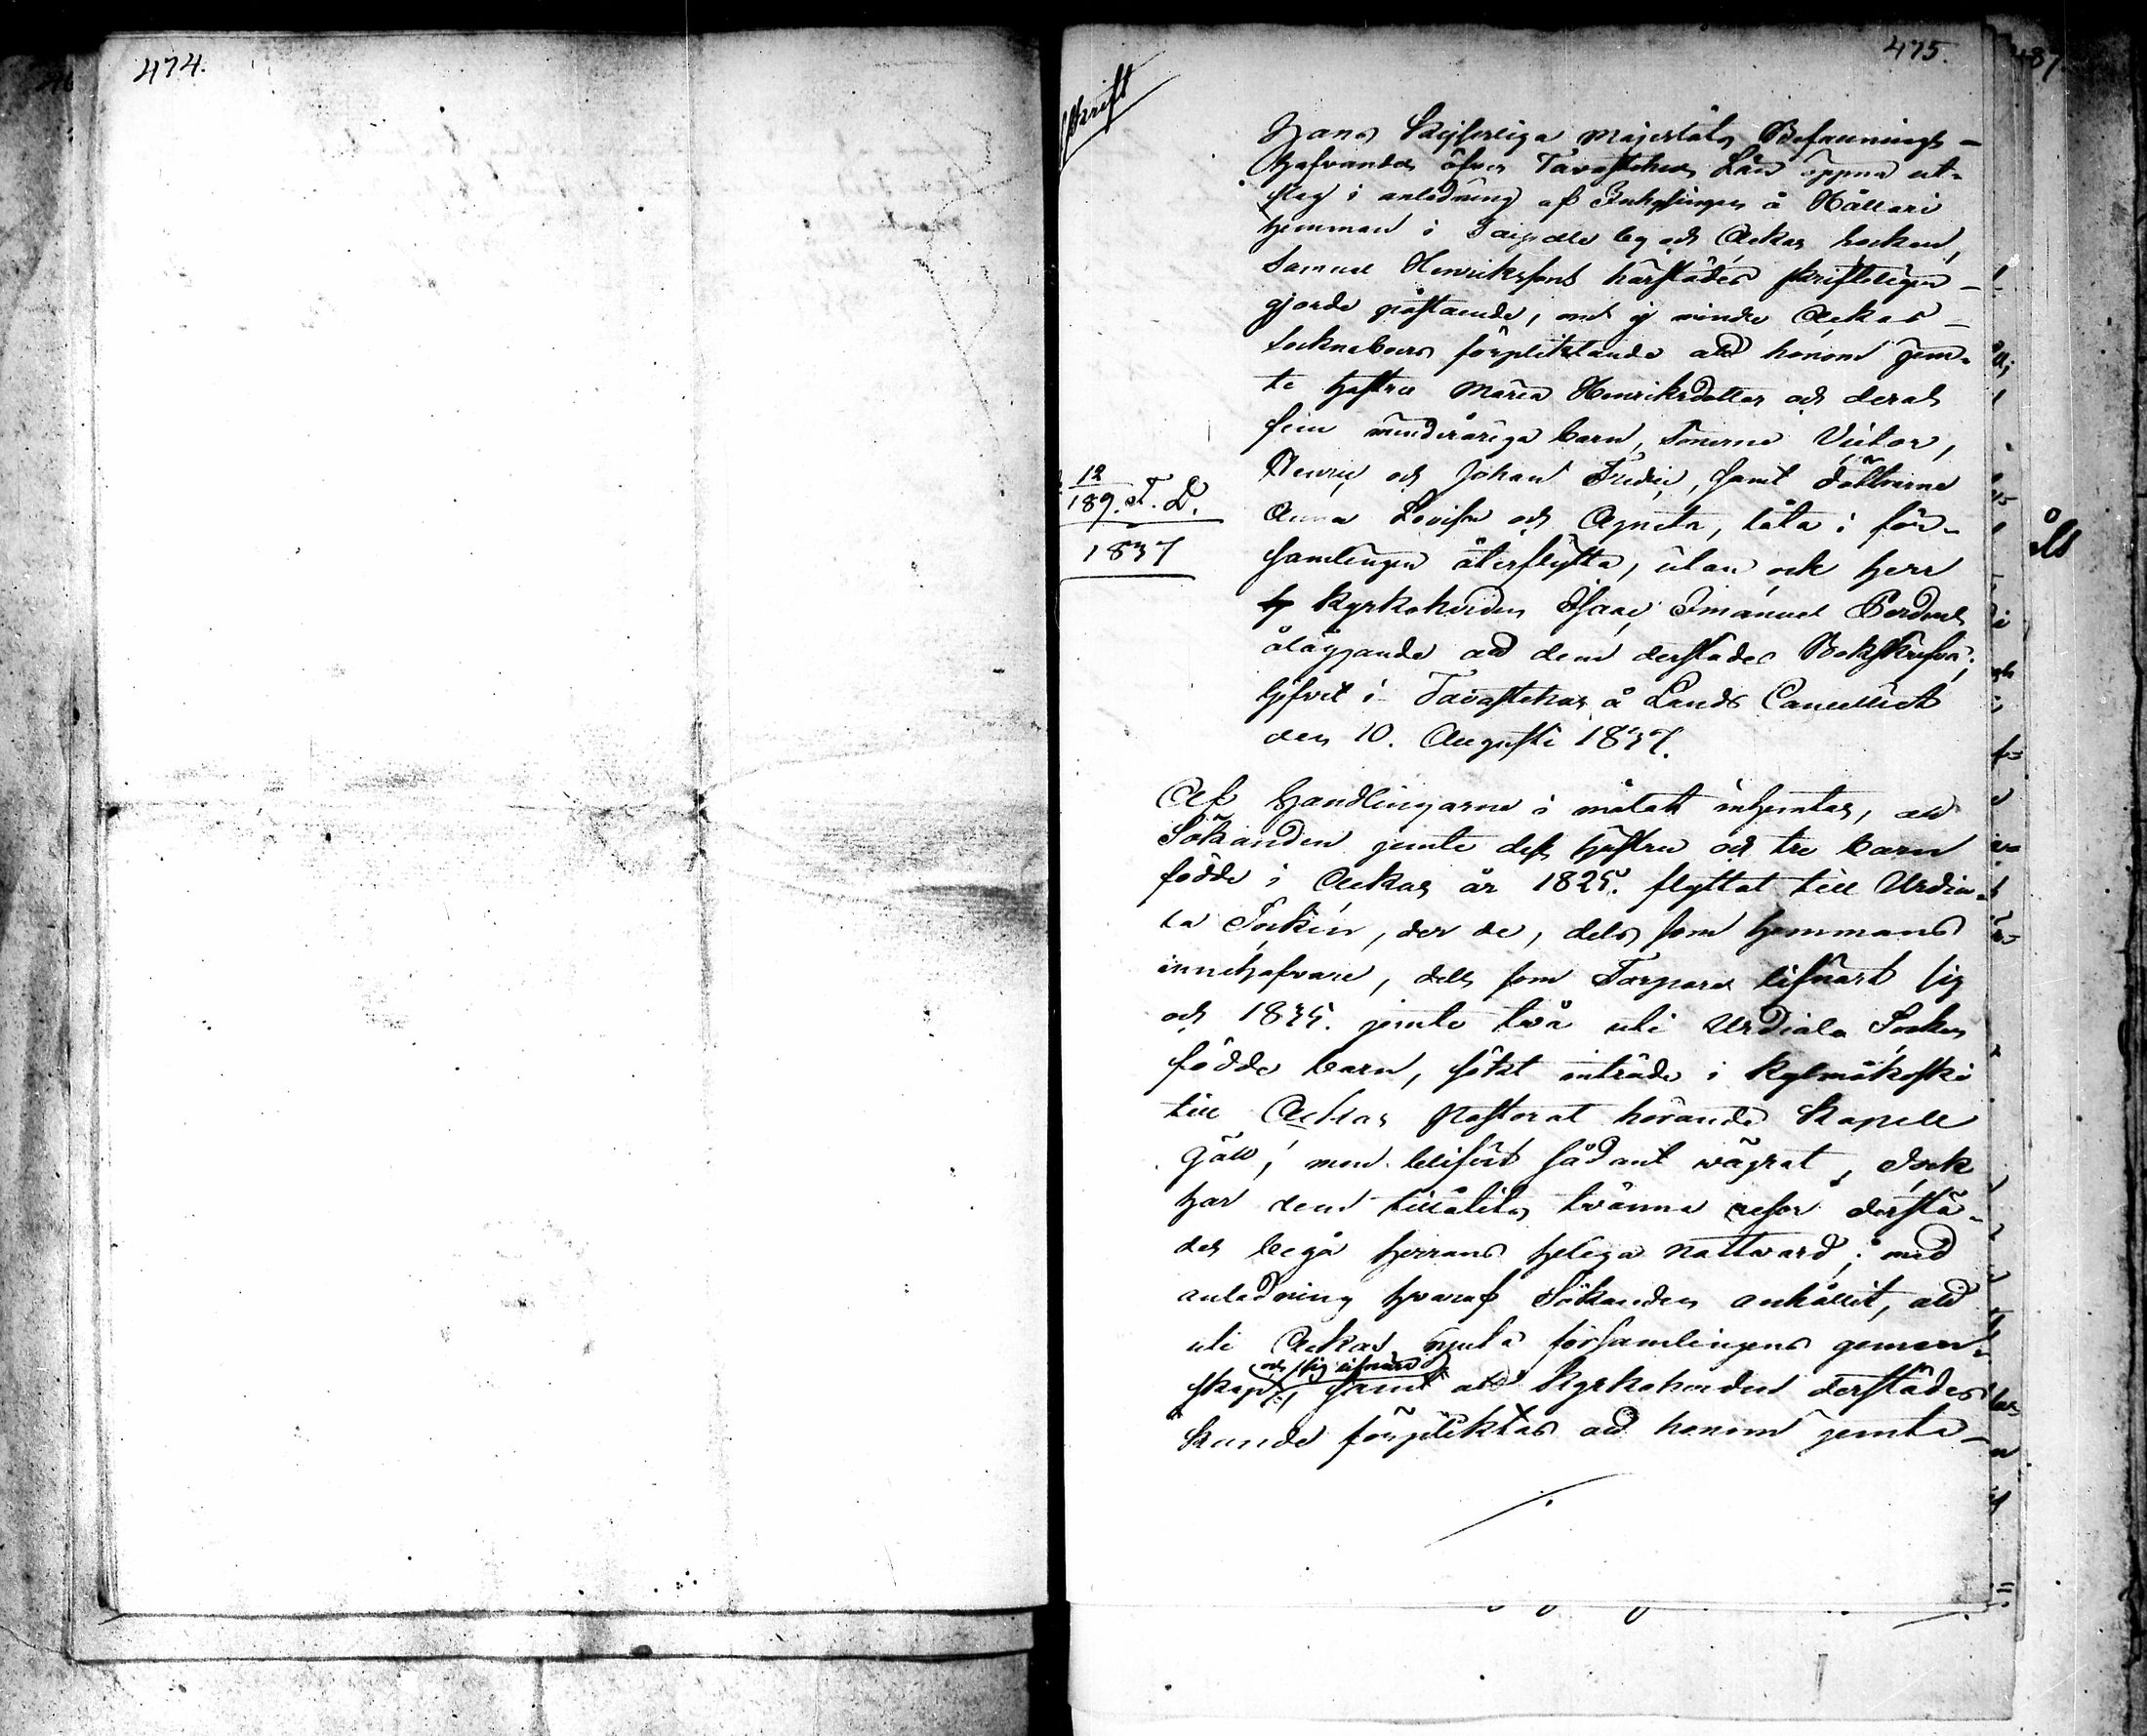 474.
475.
skrift
Hans Kejserliga Majestäts Befallnings-
hafvandes öfver Tavastehus Län öppna ut-
slag i anledning af Inhysingen å Hållari
hemman i by och Ackas Socken,
Samuel Henrikssons härstädes skrifteligen
gjorde påstående, om ej mindre Ackas
Sockneboers förpliktande att honom jem-
te hustru Maria Henriksdotter och deras
fem minderåriga barn, Sönerne Victor,
Henric och Johan Fredric, samt döttrarne
Anna Lovisa och Agneta, låta i för-
samlingen återflytta, utan ock herr
Kyrkoherden Isaac Emanuel
åläggande att dem derstädes Bokskrifva;
Gifvet i Tavastehus å Lands Cancelliet
den 10. Augusti 1837.
12
189. A. D.
1837
Af Handlingarne i målet inhemtas, att
Sökanden jemte dess hustru och tre barn
födde i Ackas år 1825. flyttat till Urdia-
la Socken, der de, dels som hemmans
innehafvare, dels som Torpare lifnärt sig
och 1835. jemte två uti Urdiala Socken
födde barn, sökt inträde i Kylmäkoski
till Ackas Pastorat hörande Kapell
Gäll, men blifvit sådant vägrat, dock
har dem tillåtits tvänne resor derstä-
des begå Herrans heliga Nattvard; med
anledning hvaraf Sökanden anhållit, att
uti Ackas njuta församlingens gemen-
och sig lifnära
skap, samt att Kyrkoherden derstädes
kunde förpliktas att honom jemte